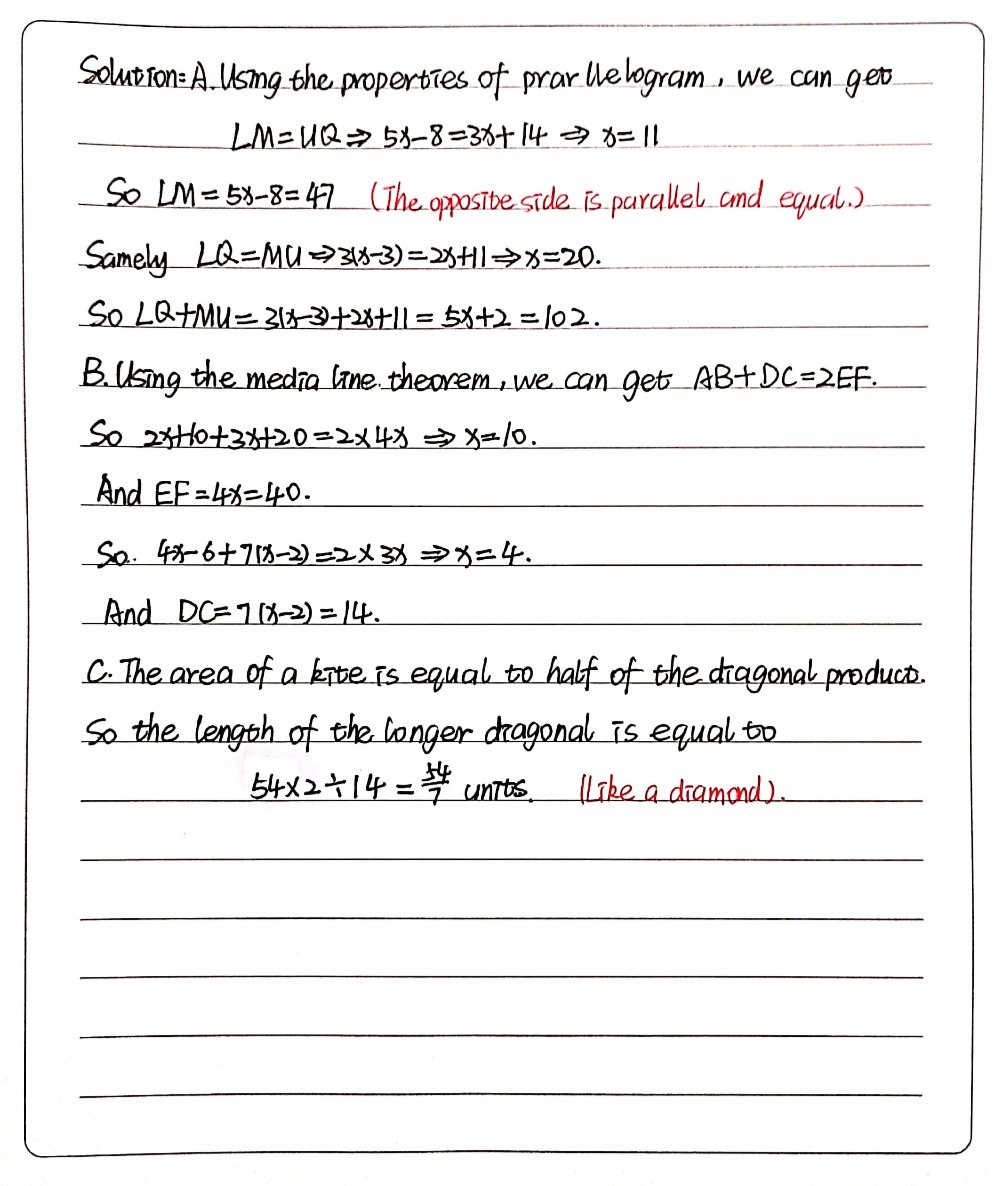 Solution: A. Using the properties of prarllelogram, we can get
LM=UQ⇒5x-8=3x+14⇒x=11
So LM=5x-8=47 (The opposite side is parallel and equal.)
Samely LQ=MU⇒3(x-3)=2x+11⇒x=20.
So LQ+MU=3(x-3)+2x+11=5x+2=102.
B. Using the media line theorem, we can get AB+DC=2EF.
So 2x+10+3x+20=2×4x⇒x=10.
And EF=4x=40.
So. 4x-6+7(x-2)=2×3x⇒x=4.
And DC=7(x-2)=14.
C. The area of a kite is equal to half of the diagonal product.
So the length of the longer diagonal is equal to
54×2÷14=54/7 units. (Like a diamond).